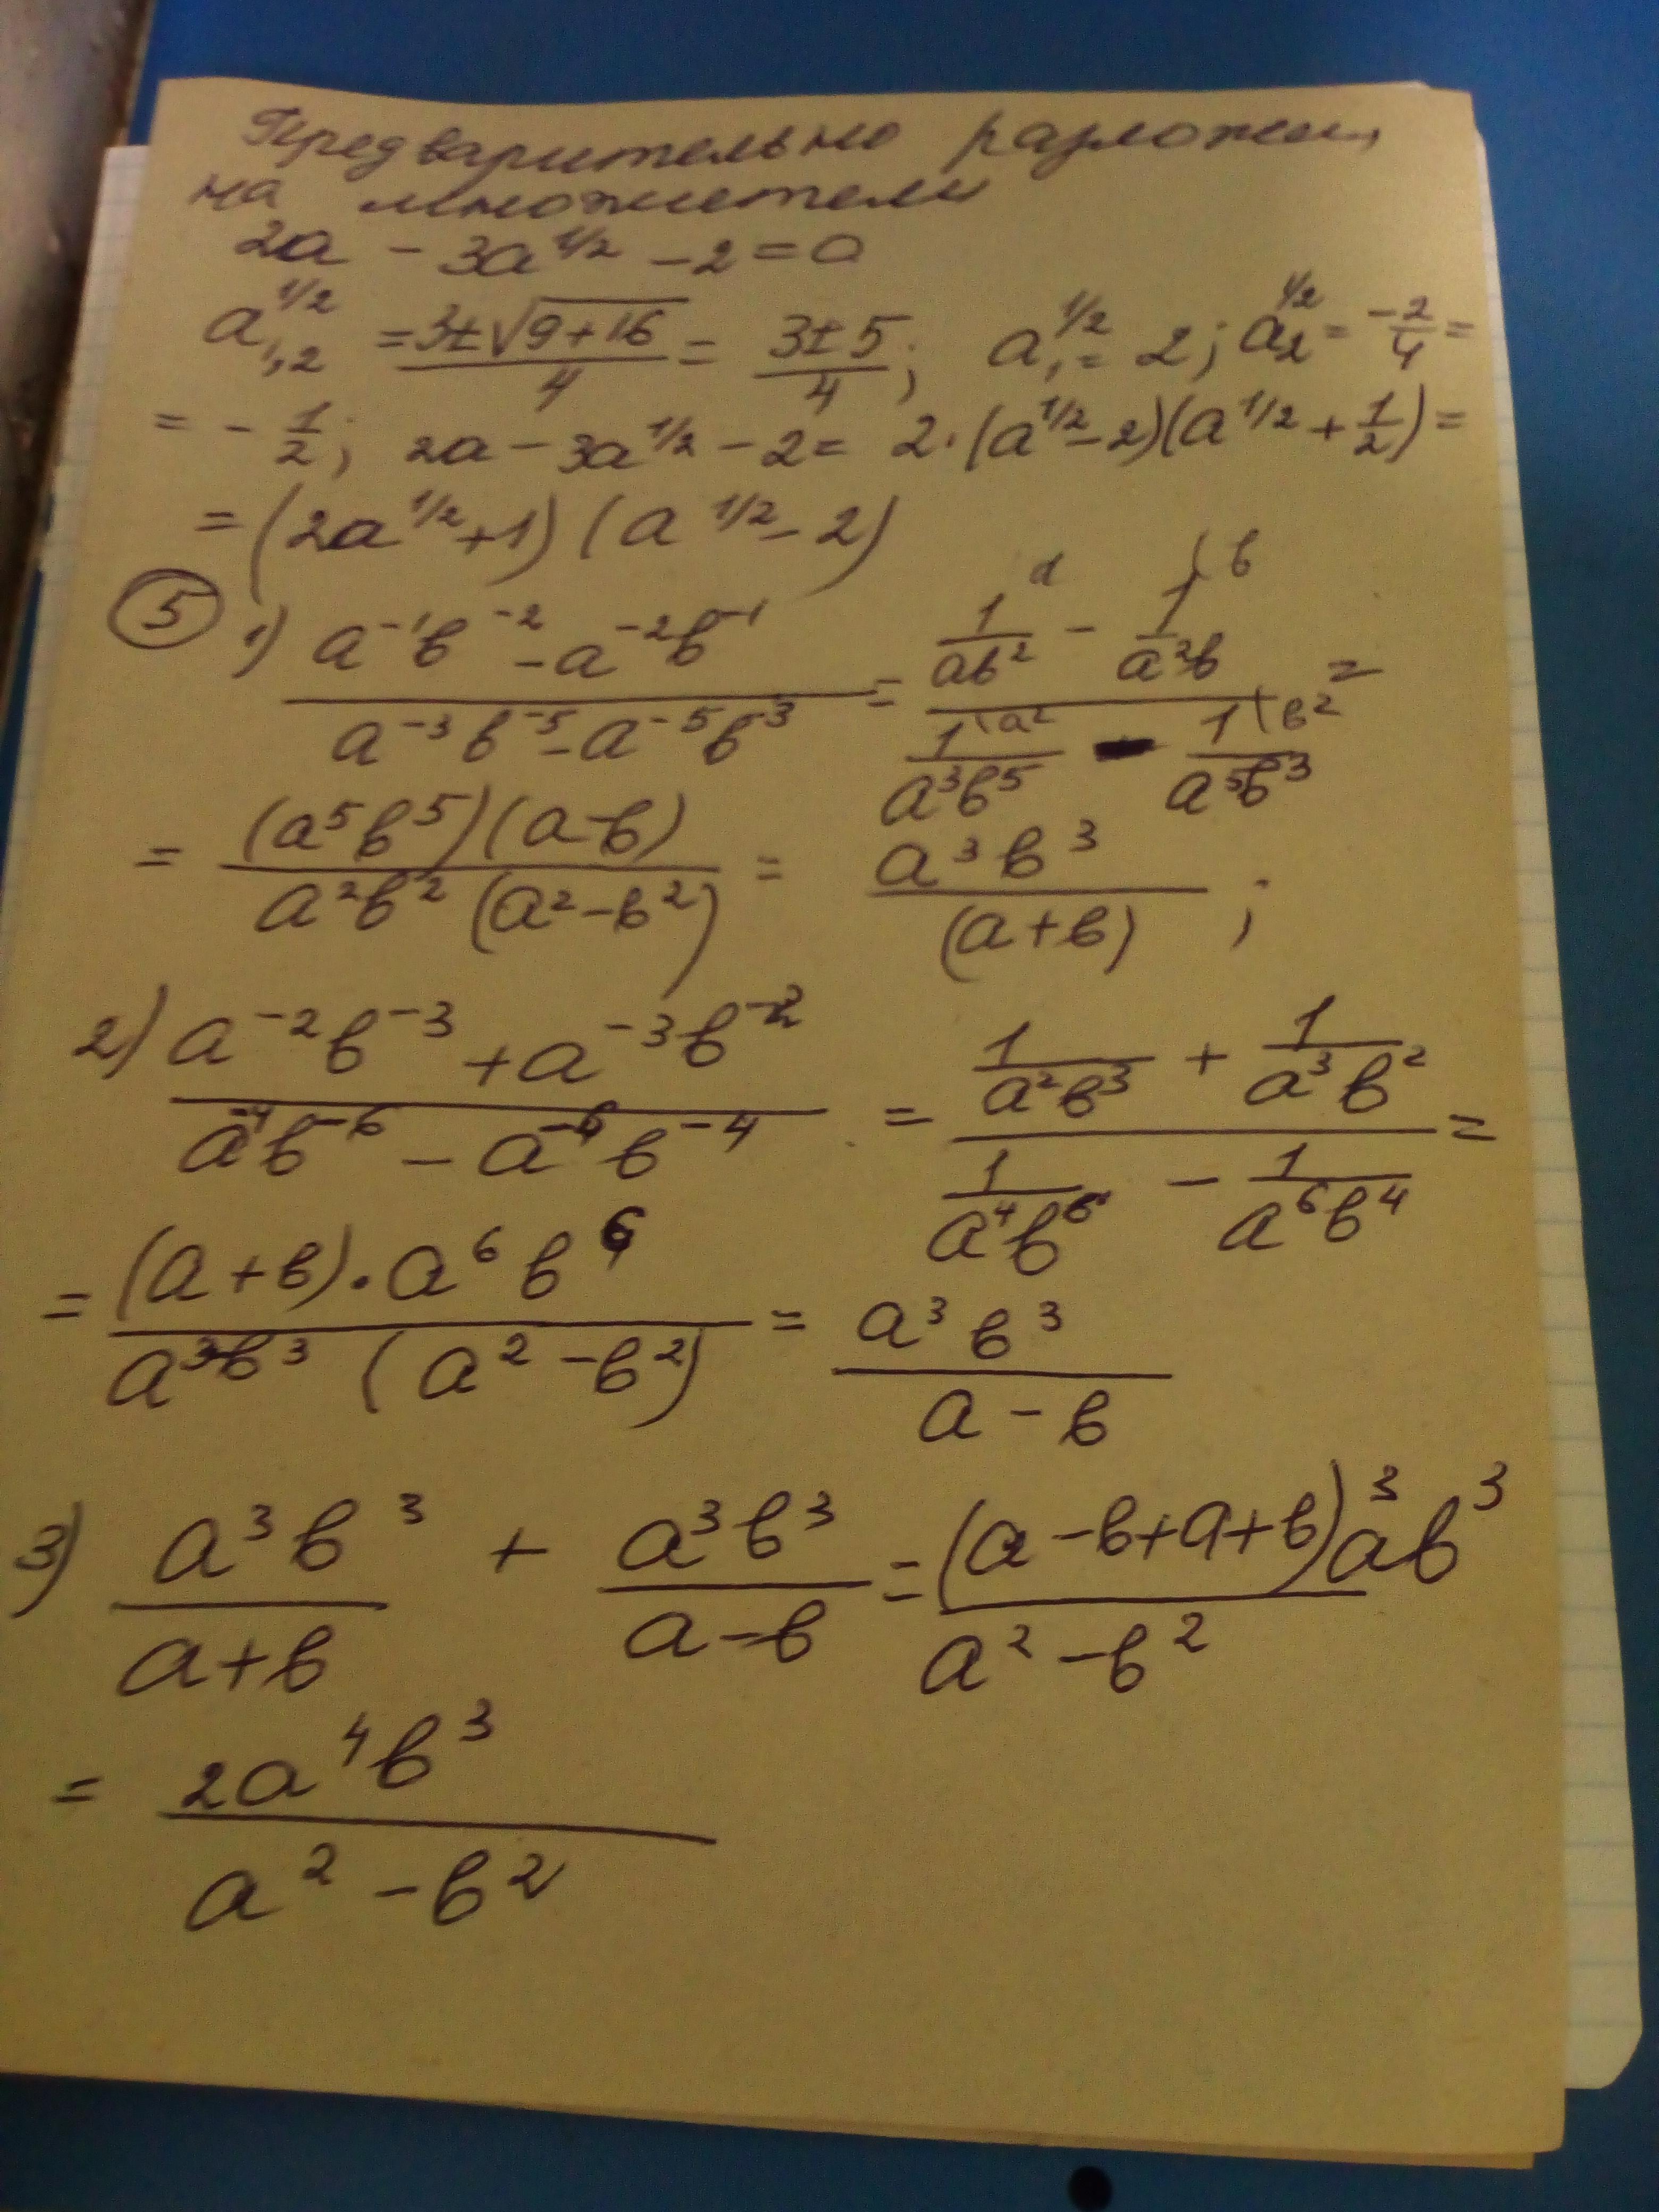 Предварительно разложим
на множители
2a - 3a^{1/2} - 2 = 0
a^{1/2}_{1,2} = \frac{3±√(9+16)}{4} = \frac{3±5}{4}; a_1^{1/2} = 2; a_2^{1/2} = \frac{-2}{4} =
= -\frac{1}{2}; 2a - 3a^{1/2} - 2 = 2·(a^{1/2} - 2)(a^{1/2} + \frac{1}{2}) =
= (2a^{1/2} + 1)(a^{1/2} - 2)
5 1) \frac{a^{-1}b^{-2} - a^{-2}b^{-1}}{a^{-3}b^{-5} - a^{-5}b^{3}} = \frac{\frac{1}{ab^2}^{\a} - \frac{1}{a^2b}^{\b}}{\frac{1}{a^3b^5}^{\a^2} - \frac{1}{a^5b^3}^{\b^2}} =
= \frac{(a^5b^5)(a-b)}{a^2b^2(a^2-b^2)} = \frac{a^3b^3}{(a+b)};
2) \frac{a^{-2}b^{-3} + a^{-3}b^{-2}}{a^{-4}b^{-6} - a^{-6}b^{-4}} = \frac{\frac{1}{a^2b^3} + \frac{1}{a^3b^2}}{\frac{1}{a^4b^6} - \frac{1}{a^6b^4}} =
= \frac{(a+b)·a^6b^6}{a^3b^3(a^2-b^2)} = \frac{a^3b^3}{a-b}
3) \frac{a^3b^3}{a+b} + \frac{a^3b^3}{a-b} = \frac{(a-b+a+b)a^3b^3}{a^2-b^2}
= \frac{2a^4b^3}{a^2-b^2}